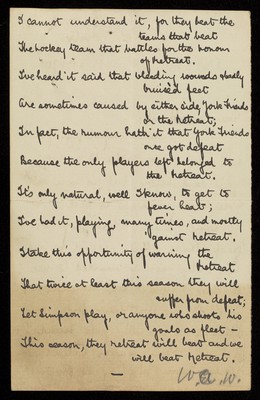 I cannot understand it, for they beat the
teams that beat
The hockey team that battles for the honour
of Retreat.
I've heard it said that bleeding wounds and
bruisèd feet
Are sometimes caused by either side, York Friends
or the Retreat;
In fact, the rumour hath it that York Friends
once got defeat
Because the only players left belonged to
the Retreat.
It's only natural, well I know, to get to
fever heat;
I've had it, playing, many times, and mostly
'gainst Retreat.
I take this opportunity of warning the
Retreat
That twice at least this season they will
suffer from defeat;
Let Simpson play, or anyone who shoots his
goals as fleet –
This season, they retreat will beat and we
will beat Retreat.
—
W.A.W.